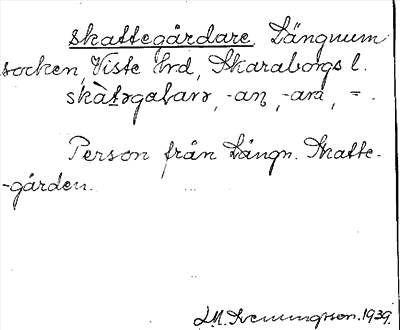 skattegårdare Längnum
socken, Viste hrd, Skaraborgs l.
-an, -ara, = .
Person från Längn. Skatte-
-gården.
1939.